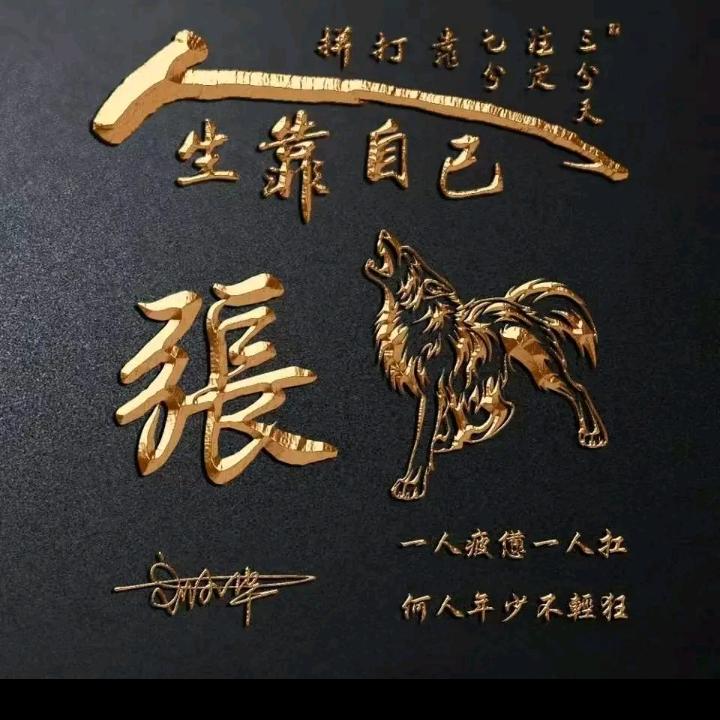 三分天
注定
七分
靠
打
拼
人生靠自己
張
一人疲憊一人扛
何人年少不輕狂